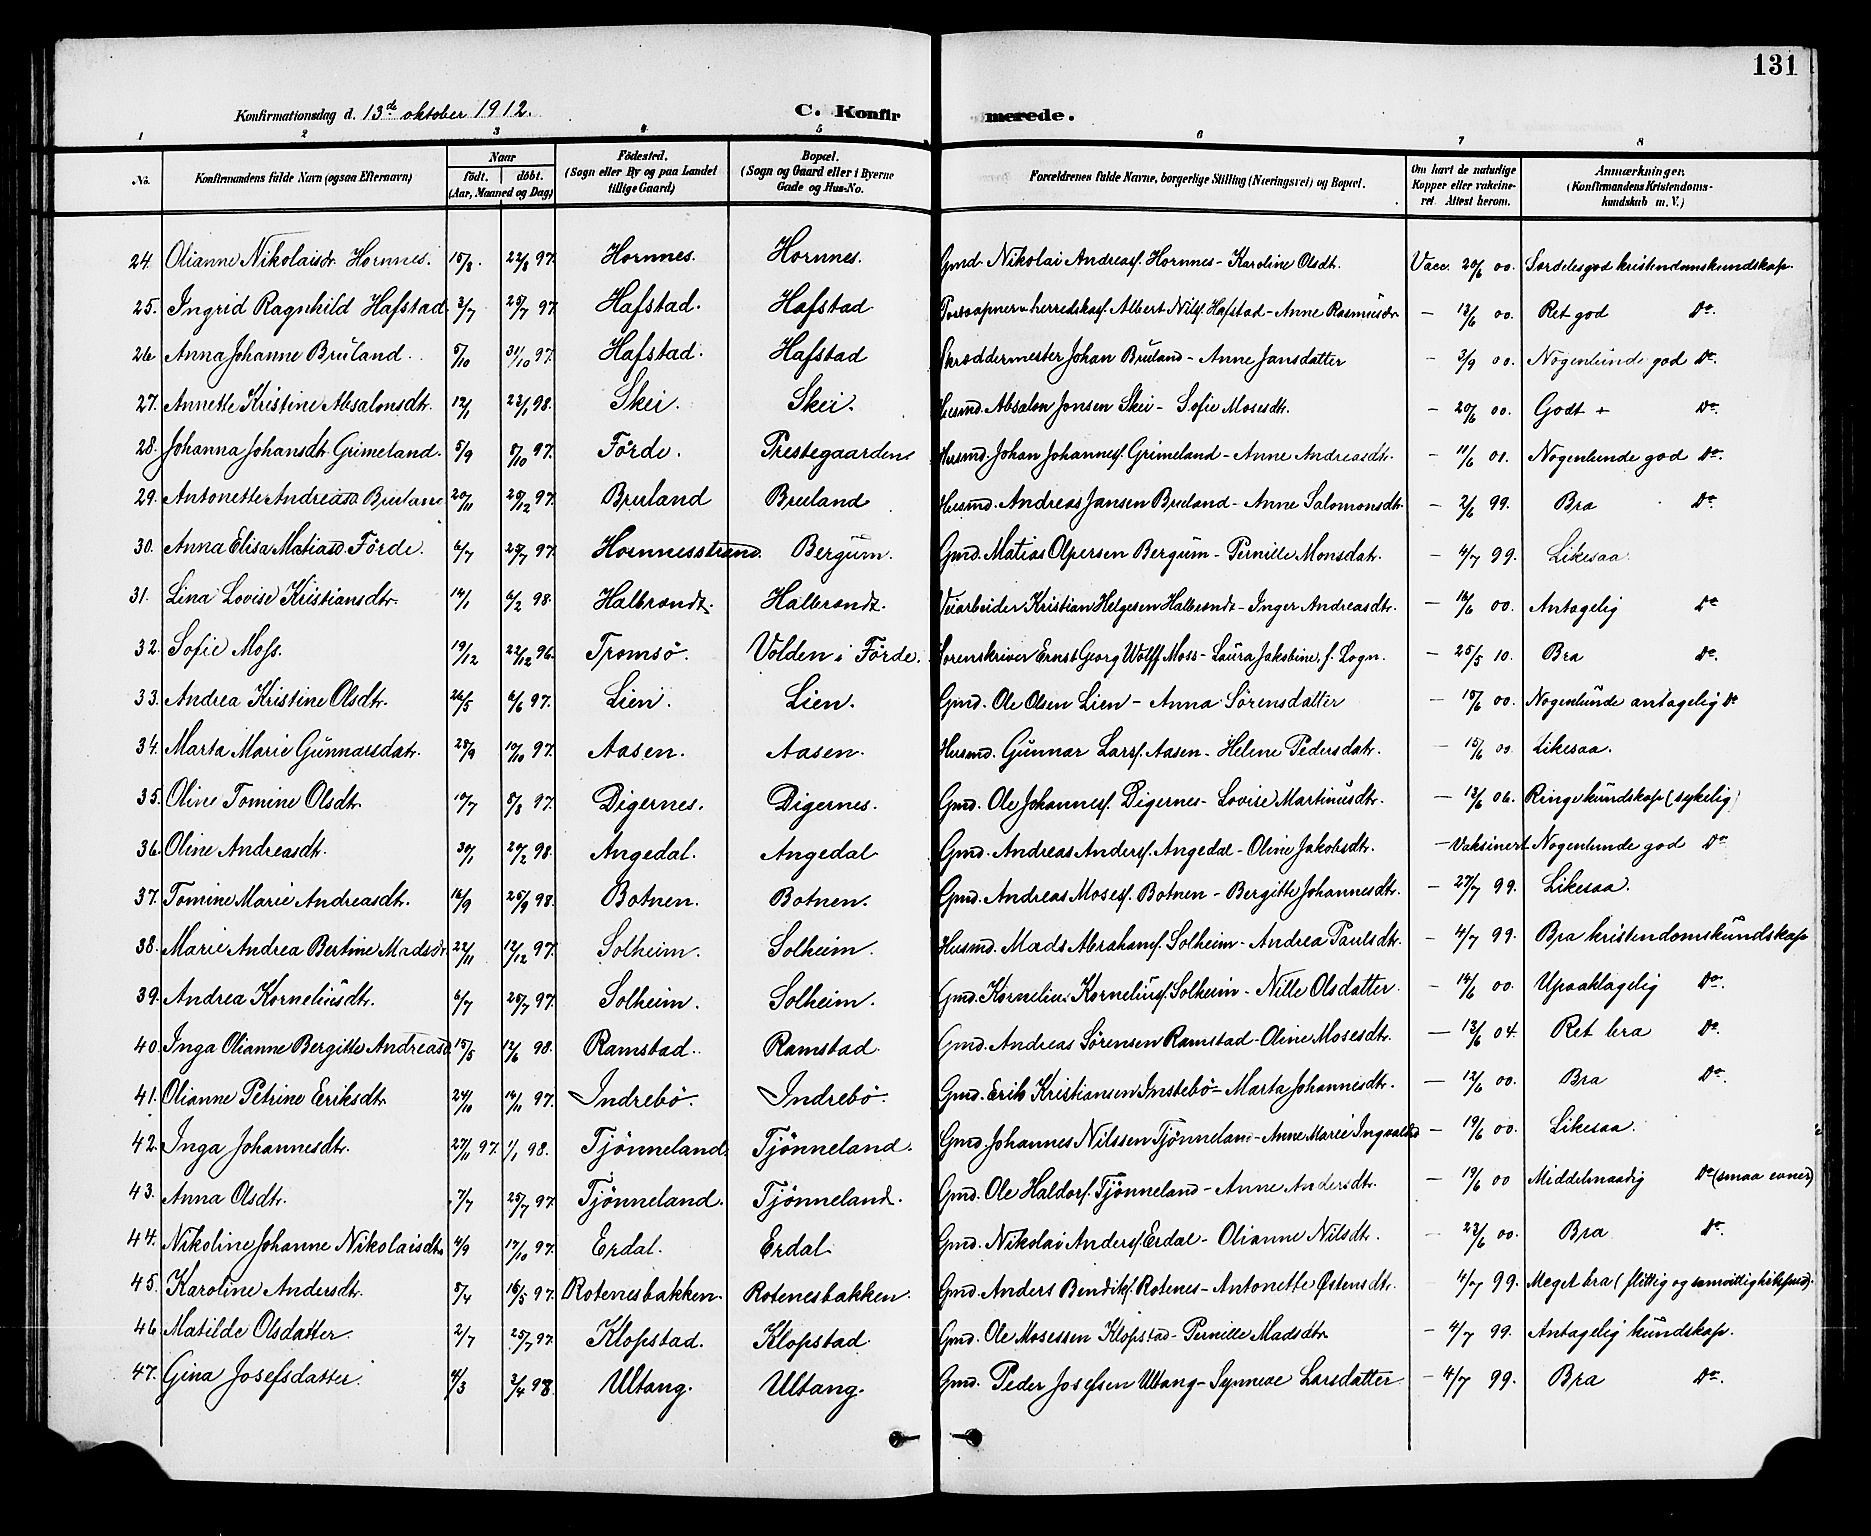 131
Konfirmationsdag d. 13de oktober 1912. C. Konfirmerede.
1 2 3 4 5 6 7 8
No. Konfirmandens fulde Navn (ogsaa Efternavn) Naar födt. döbt. (Aar, Maaned og Dag) Födested. (Sogn eller By og paa Landet tillige Gaard) Bopæl. (Sogn og Gaard eller i Byerne Gade og Hus-No. Forældrenes fulde Navne, borgerlige Stilling (Næringsvei) og Bopæl. Om havt de naturlige Kopper eller vakcineret. Attest herom. Anmærkninger. (Konfirmandens Kristendomskundskab m. V.)
24. Olianne Nikolaisdr. Hornnes. 15/8. 22/8 97. Hornnes. Hornnes. Gmd. Nikolai Andreasf. Hornnes - Karoline Olsdt. Vacc. 20/6 00. Særdelesgod kristendomskundskap.
25. Ingrid Ragnhild Hafstad 3/7 25/7 97 Hafstad. Hafstad Postaapner og herredskas. Albert Nilsf. Hafstad - Anne Rasmusdr - 13/6 00. Ret god Do.
26 Anna Johanne Bruland. 5/10 31/10 97. Hafstad. Hafstad Skræddermester Johan Bruland - Anne Jansdatter - 3/9 00. Nogenlunde god Do.
27. Annette Kristine Absalonsdtr. 12/1 23/1 98. Skei. Skei. Husmd. Absalon Jonsen Skei - Sofie Mosesdt. - 20/6 00. Godt + Do.
28. Johanna Johansdt. Grimeland. 5/9 8/10 97. Förde. Prestegaardens Husmd. Johan Johannesf. Grimeland - Anne Andreasdtr. - 11/6 01. Nogenlunde god Do.
29. Antonette Andreasd Bruland 20/11 25/12 97. Bruland Bruland Husmd. Andreas Jansen Bruland - Anne Salomonsdtr - 2/6 99. Bra Do.
30. Anna Elisa Matiasd. Förde. 6/7 25/7 97. Hornnesstrand. Bergum. Gmd. Matias Olpersen Bergum - Pernille Monsdatr. - 4/7 99. Likesaa.
31. Lina Lovise Kristiansdtr. 14/1 6/2 98. Halbrandt. Halbrandt. Veiarbeider Kristian Helgesen Halbrandt - Inger Andreasdtr. - 16/6 00. Antagelig Do
32. Sofie Moss. 19/12 22/12 96. Tromsö. Volden i Förde. Sorenskriver Ernst Georg Wolff Moss - Laura Jakobine, f. Logn. - 25/5 10. Bra Do.
33. Andrea Kristine Olsdtr. 26/5 6/6 97. Lien. Lien. Gmd. Ole Olsen Lien - Anna Sörensdatter - 15/6 00. Nogenlunde antagelig Do
34. Marta Marie Gunnarsdatr. 28/9 10/10 97. Aasen. Aasen. Husmd. Gunnar Larsf. Aasen - Helene Pedersdatr. - 15/6 00 Likesaa.
35. Oline Tomine Olsdtr. 10/7 8/8 97. Digernes. Digernes. Gmd. Ole Johannesf. Digernes - Lovise Martinusdtr. - 13/6 06. Ringe kundskap (sykelig)
36. Oline Andreasdtr. 30/1 20/2 98. Angedal. Angedal Gmd. Andreas Andersf. Angedal - Oline Jakobsdtr. - Vaksinert Nogenlunde god Do
37. Tomine Marie Andreasdtr. 16/9 25/9 98. Botnen. Botnen. Gmd. Andreas Mosesf. Botnen - Bergitte Johannesdtr. - 27/7 99. Likesaa.
38. Marie Andrea Bertine Madsdtr 22/11 12/12 97. Solheim. Solheim. Husmd. Mads Abrahamf. Solheim - Andrea Paulsdtr. - 4/7 99. Bra kristendomskundskap
39. Andrea Korneliusdtr. 6/7 25/7 97. Solheim. Solheim. Gmd. Kornelius Korneliusf. Solheim - Nille Olsdatter - 14/6 00. Upaaklagelig Do.
40. Inga Olianne Bergitte Andreasd 15/5 12/6 98. Ramstad. Ramstad. Gmd. Andreas Sörensen Ramstad - Oline Mosesdtr. - 13/6 04. Ret bra Do.
41. Olianne Petrine Eriksdtr 24/10 14/11 97. Indrebö. Indrebö. Gmd. Erik Kristiansen Instebö - Marta Johannesdtr. - 12/6 00. Bra Do.
42. Inga Johannesdtr. 27/11 97. 1/1 98. Tjönneland Tjönneland. Gmd. Johannes Nilssen Tjönneland - Anne Marie Ingvalds - 19/6 00. Likesaa.
43. Anna Olsdtr. 7/7 25/7 97. Tjönneland. Tjönneland. Gmd. Ole Haldorf. Tjönneland - Anne Andersdtr. - 19/6 00 Middelmaadig Do (smaa evner)
44. Nikoline Johanne Nikolaisdtr 4/9 17/10 97. Erdal. Erdal Gmd. Nikolai Andersf. Erdal - Olianne Nilsdtr. - 23/6 00. Bra Do.
45. Karoline Andersdtr. 5/4 16/5 97. Rotenesbakken. Rotenesbakken. Gmd. Anders Bendikf. Rotenes - Antonette Østensdtr. 4/7 99. Meget bra (flittig og samvittighetsfuld).
46 Matilde Olsdatter. 2/7 25/7 97. Klopstad. Klopstad Gmd. Ole Mosessen Klopstad - Pernille Madsdtr - 4/7 99. Antagelig kundskap.
47. Gina Josefsdatter. 4/3 3/4 98 Ultang. Ultang. Gmd. Peder Josefsen Ultang - Synneve Larsdatter - 4/7 99. Bra Do.